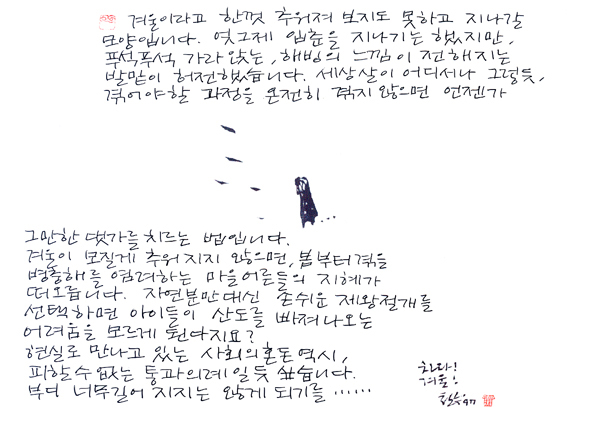 겨울이라고 한껏 추워져 보지도 못하고 지나갈
모양입니다. 엊그제 입춘을 지나기는 했지만,
푸석푸석 가라앉는, 해빙의 느낌이 전해지는
발맡이 허전했습니다. 세상살이 어디서나 그렇듯,
겪어야할 과정을 온전히 겪지 않으면 언젠가
그만한 댓가를 치르는 법입니다.
겨울이 모질게 추워지지 않으면, 봄부터 겪을
병충해를 염려하는 마을어른들의 지혜가
떠오릅니다. 자연분만대신 손쉬운 제왕절개를
선택하면 아이들이 산도를 빠져나오는
어려움을 모르게 된다지요?
현실로 만나고 있는 사회의혼돈역시,
피할수없는 통과의례일듯 싶습니다.
부디 너무길어 지지는 않게 되기를 ……
겨울!
'97